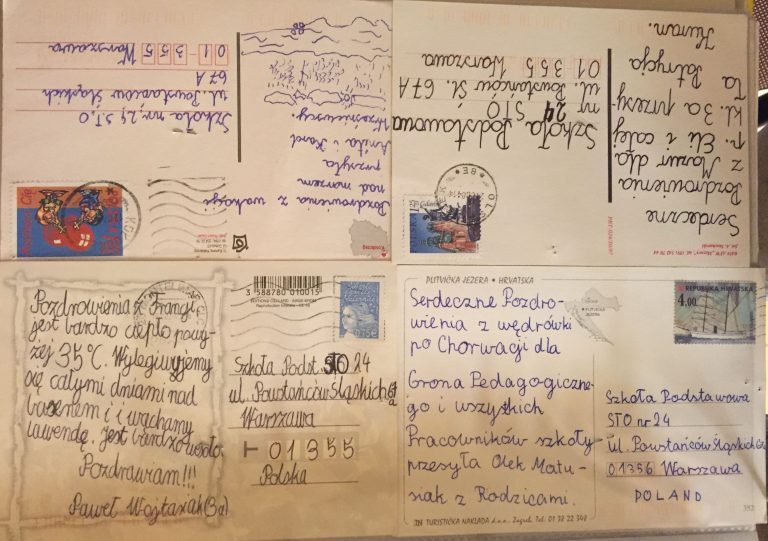 Pozdrowienia z wakacji
nad morzem
przesyła
Anita i Karol
Szkoła nr. 24 S.T.O
ul. Powstańców Śląskich
67A
01 355 Warszawa
Serdeczne
Pozdrowienia
z Mazur dla
p. Eli i całej
kl. 3a przesy-
ła Patrycja
Kuran.
Szkoła Podstawowa
nr 24
STO
ul. Powstańców Śl. 67A
01 355 Warszawa
Pozdrowienia z Francji
jest bardzo ciepło powy-
żej 35°C. Wylegiwujemy
się całymi dniami nad
basenem i i wąchamy
lawendę. Jest bardzo wesoło.
Pozdrawiam!!!
Paweł Wojtasiak (3a)
3 588780 010015
Szkoła Podst. STO 24
ul. Powstańców Śląskich
Warszawa
01355
Polska
PLITVIČKA JEZERA • HRVATSKA
Serdeczne Pozdro-
wienia z wędrówki
po Chorwacji dla
Grona Pedagogiczne-
go i wszystkich
Pracowników szkoły
przesyła Olek Matu-
siak z Rodzicami.
TURISTIČKA NAKLADA d.o.o. Zagreb
PLITVIČKA
JEZERA
REPUBLIKA HRVATSKA
4,00
Szkoła Podstawowa
STO nr 24
ul. Powstańców Śląskich
01356 Warszawa
POLAND
352